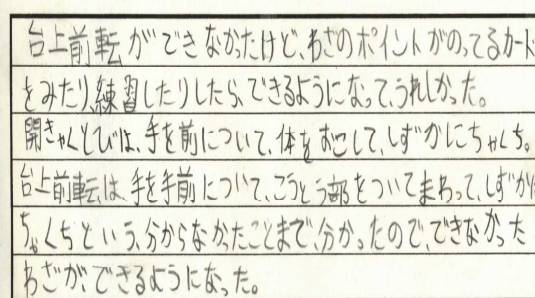 台上前転ができなかったけど、わざのポイントがのってるカード
をみたり、練習したりしたら、できるようになって、うれしかった。
開きゃくとびは、手を前について、体をおこして、しずかにちゃくち。
台上前転は、手を手前について、こうとう部をついてまわって、しずかに
ちゃくちという、分からなかったことまで、分かったので、できなかった
わざが、できるようになった。